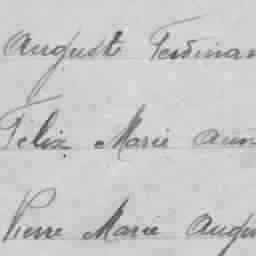 Auguste Ferdinan
Félix Marie Ann
Pierre Marie Augu